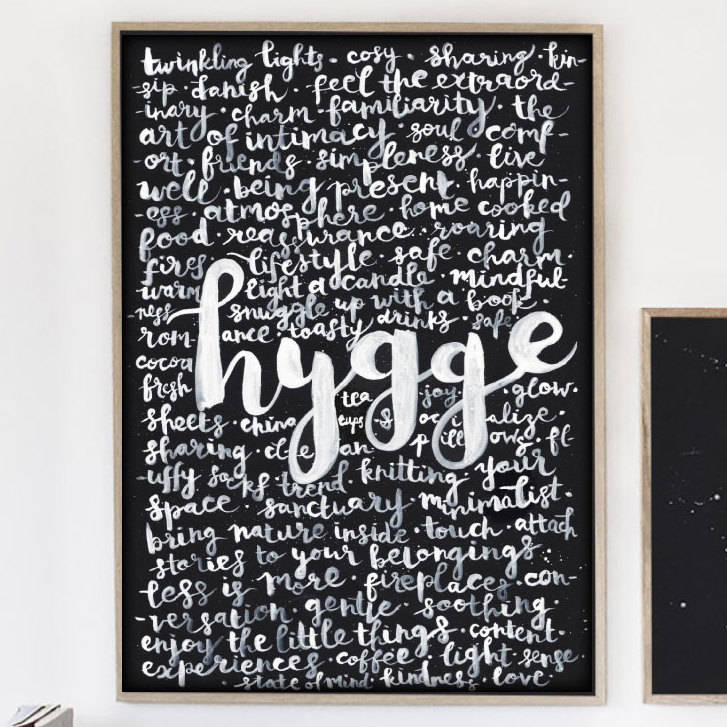 twinkling lights · cosy · sharing · kin-
sip · danish · feel the extraord-
inary · charm · familiarity · the
art of intimacy · soul · comf-
ort · friends · simpleness · live
well · being present · happin-
ess · atmosphere · home cooked
food · reassurance · roaring
fires · lifestyle · safe · charm ·
warm · light a candle · mindful-
ness · snuggle up with a book ·
rom- ance · toasty · drinks · safe
hygge
cocoa
fresh tea · joy · glow ·
sheets · china cups · socialize ·
sharing · clean pillows · fl-
uffy socks · trend · knitting · your
space · sanctuary · minimalist ·
bring nature inside · touch · attach
stories to your belongings ·
less is more · fireplaces · con-
versation · gentle · soothing ·
enjoy the little things · content ·
experiences · coffee · light · sense
· state of mind · kindness · love ·